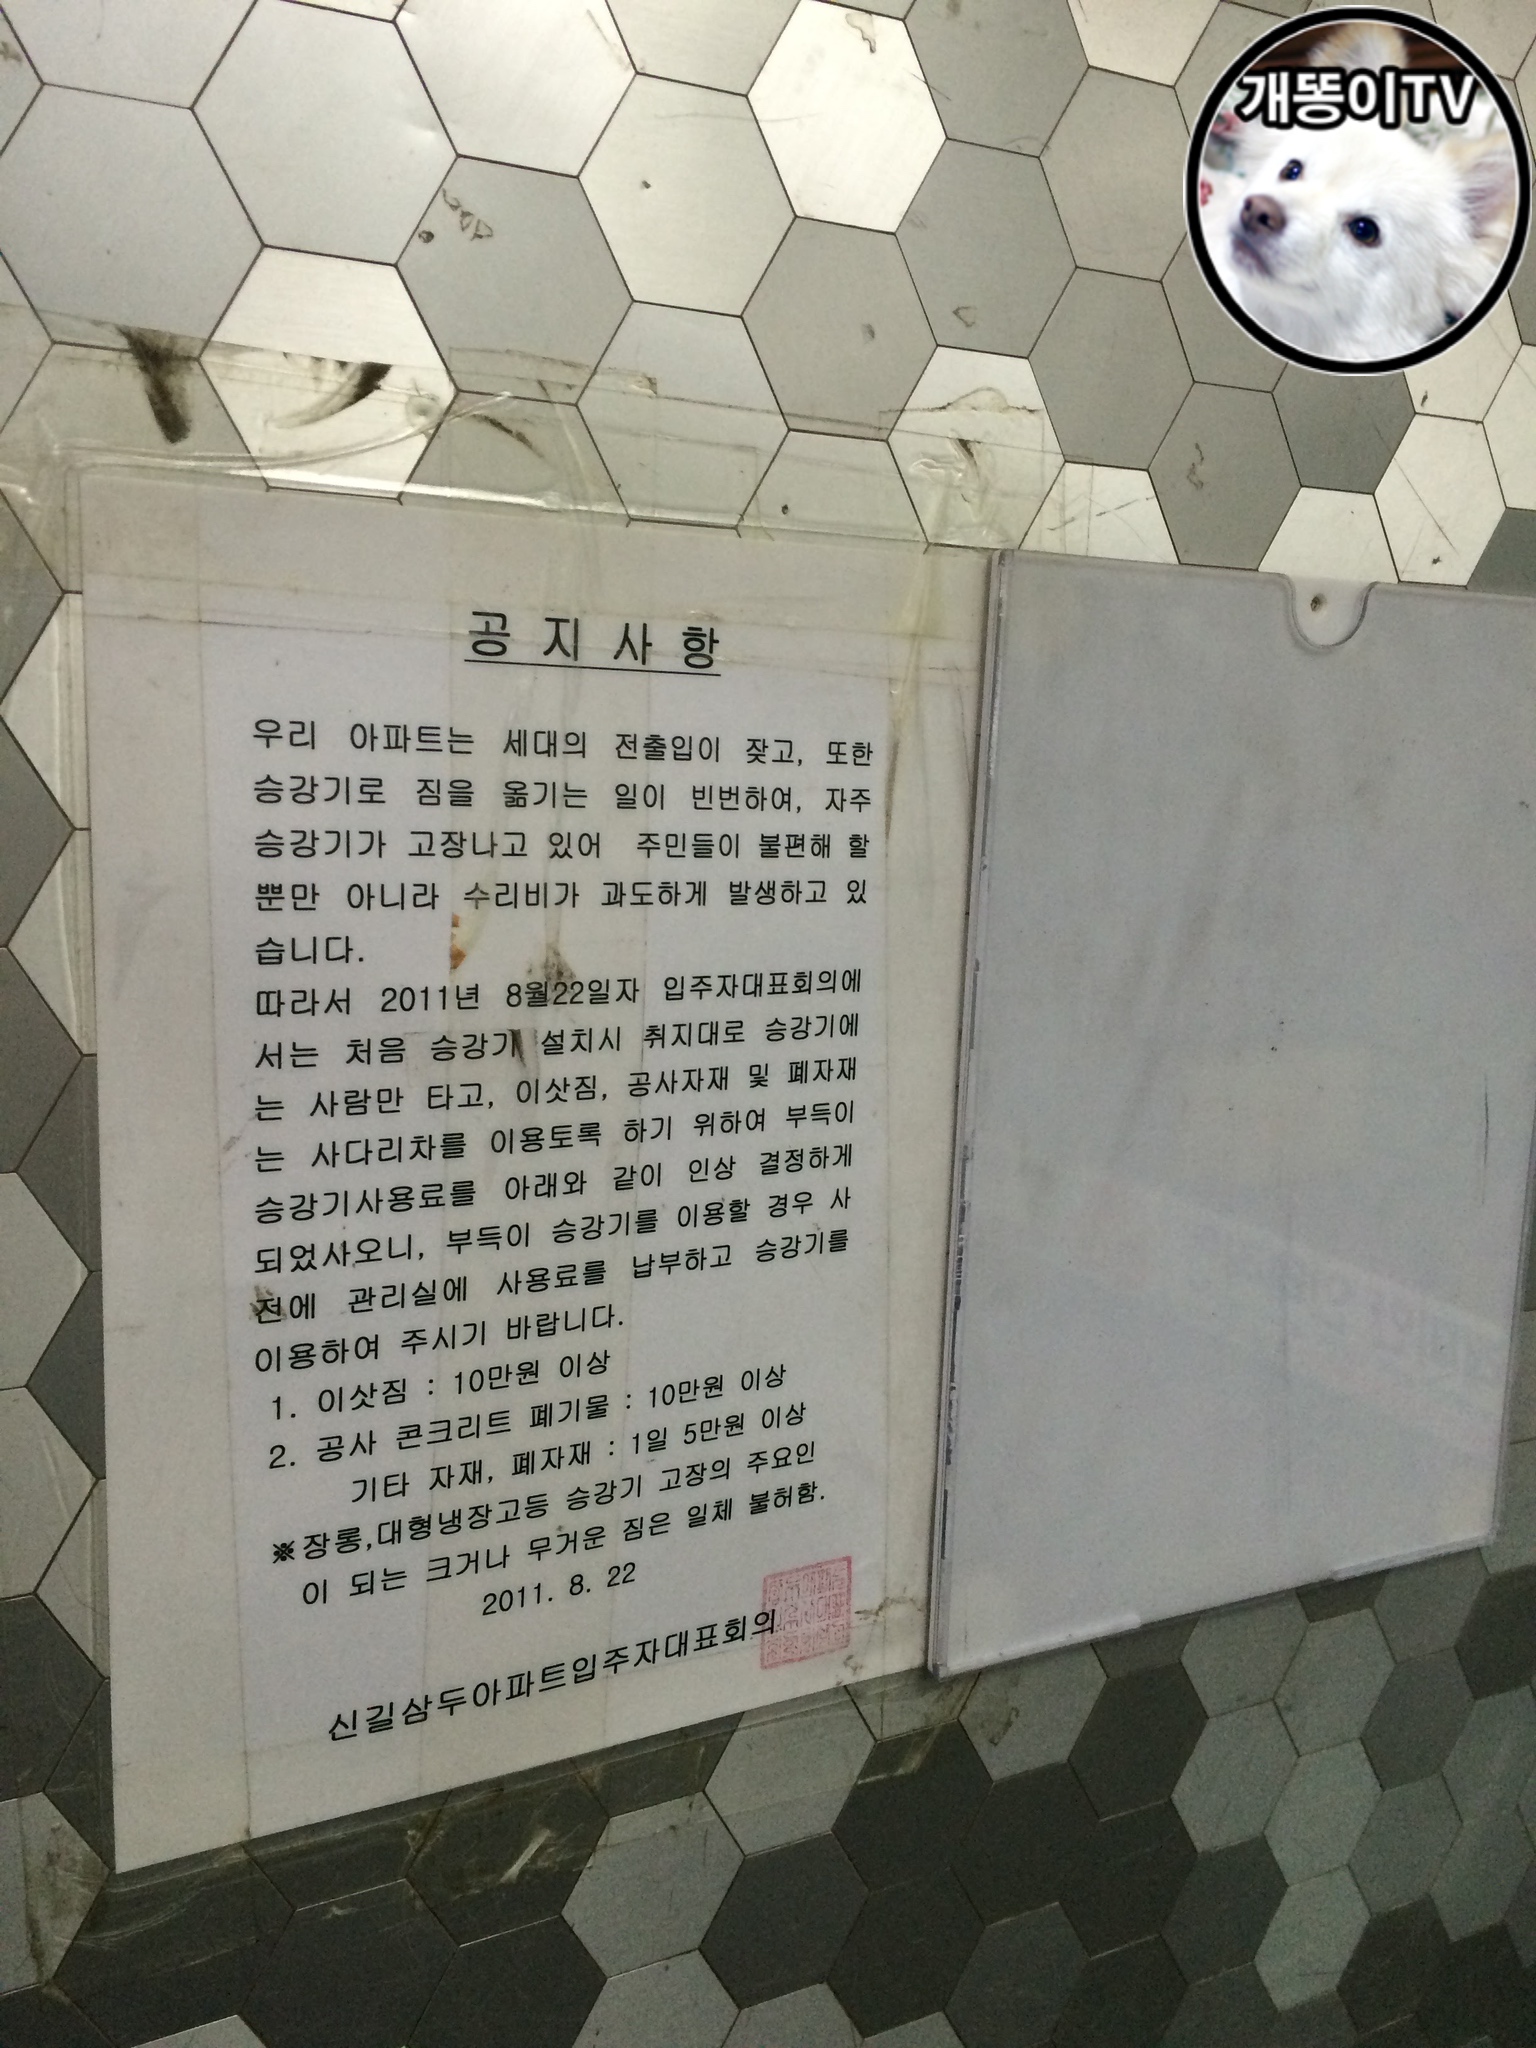 개똥이TV
공 지 사 항
우리 아파트는 세대의 전출입이 잦고, 또한
승강기로 짐을 옮기는 일이 빈번하여, 자주
승강기가 고장나고 있어 주민들이 불편해 할
뿐만 아니라 수리비가 과도하게 발생하고 있
습니다.
따라서 2011년 8월22일자 입주자대표회의에
서는 처음 승강기 설치시 취지대로 승강기에
는 사람만 타고, 이삿짐, 공사자재 및 폐자재
는 사다리차를 이용토록 하기 위하여 부득이
승강기사용료를 아래와 같이 인상 결정하게
되었사오니, 부득이 승강기를 이용할 경우 사
전에 관리실에 사용료를 납부하고 승강기를
이용하여 주시기 바랍니다.
1. 이삿짐 : 10만원 이상
2. 공사 콘크리트 폐기물 : 10만원 이상
기타 자재, 폐자재 : 1일 5만원 이상
※장롱,대형냉장고등 승강기 고장의 주요인
이 되는 크거나 무거운 짐은 일체 불허함.
2011. 8. 22
신길삼두아파트입주자대표회의